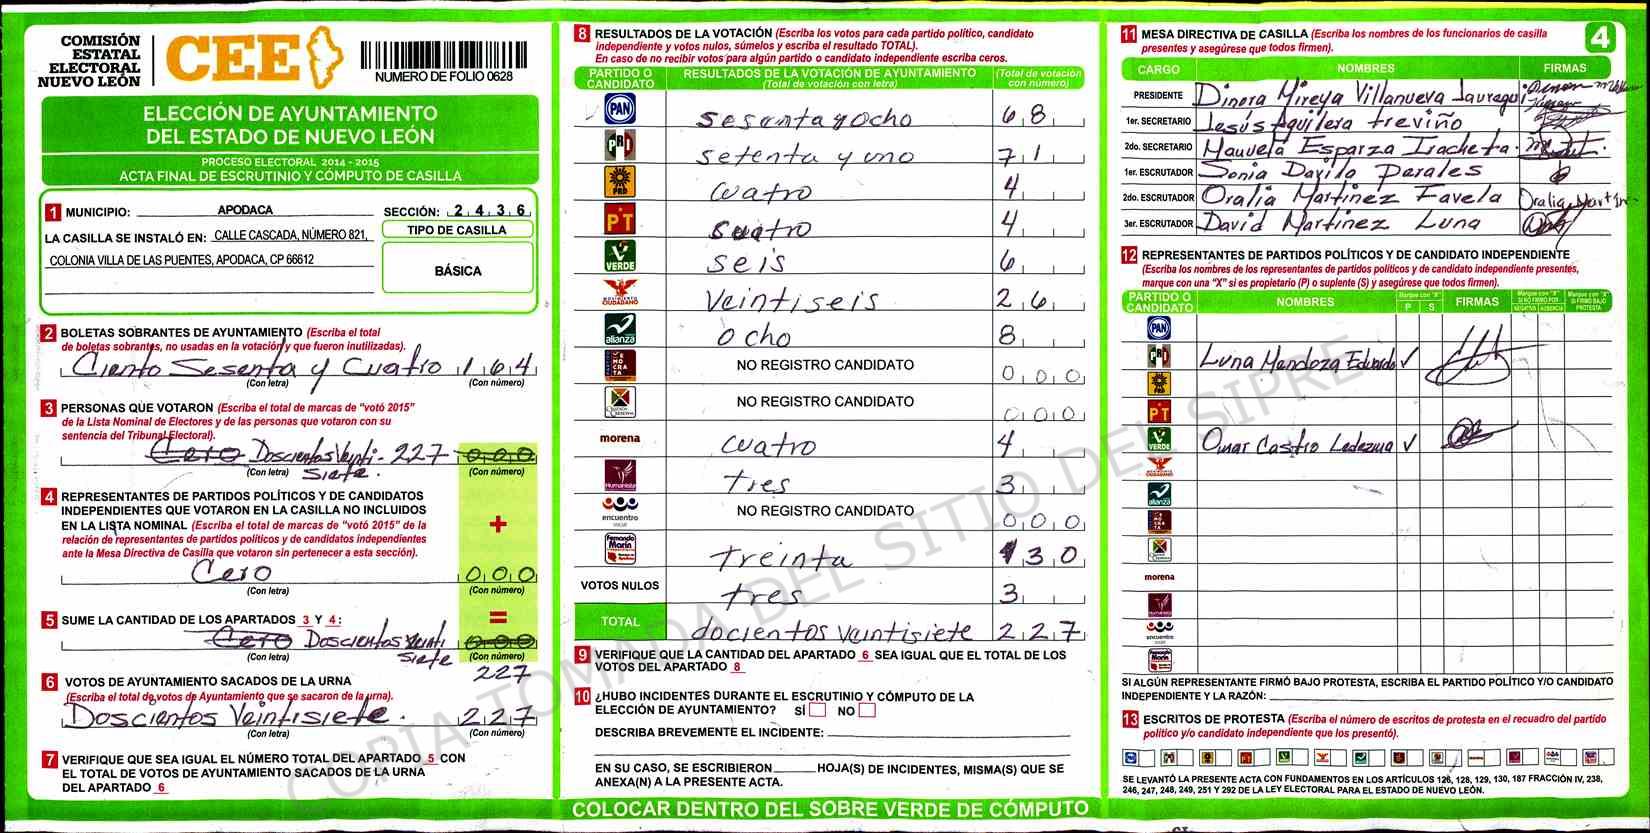 COMISIÓN
ESTATAL
ELECTORAL
NUEVO LEÓN
CEE
NUMERO DE FOLIO 0628
ELECCIÓN DE AYUNTAMIENTO
DEL ESTADO DE NUEVO LEÓN
PROCESO ELECTORAL 2014 - 2015
ACTA FINAL DE ESCRUTINIO Y CÓMPUTO DE CASILLA
1 MUNICIPIO: APODACA SECCIÓN: 2 4 3 6
LA CASILLA SE INSTALÓ EN: CALLE CASCADA, NÚMERO 821,
COLONIA VILLA DE LAS PUENTES, APODACA, CP 66612
TIPO DE CASILLA
BÁSICA
2 BOLETAS SOBRANTES DE AYUNTAMIENTO (Escriba el total
de boletas sobrantes, no usadas en la votación y que fueron inutilizadas).
Ciento Sesenta y Cuatro 1 6 4
(Con letra) (Con número)
3 PERSONAS QUE VOTARON (Escriba el total de marcas de "votó 2015"
de la Lista Nominal de Electores y de las personas que votaron con su
sentencia del Tribunal Electoral).
Cero Doscientos Veinti- 227 0 0 0
siete
(Con letra) (Con número)
4 REPRESENTANTES DE PARTIDOS POLÍTICOS Y DE CANDIDATOS
INDEPENDIENTES QUE VOTARON EN LA CASILLA NO INCLUIDOS
EN LA LISTA NOMINAL (Escriba el total de marcas de "votó 2015" de la
relación de representantes de partidos políticos y de candidatos independientes
ante la Mesa Directiva de Casilla que votaron sin pertenecer a esta sección).
+
Cero 0 0 0
(Con letra) (Con número)
5 SUME LA CANTIDAD DE LOS APARTADOS 3 Y 4: =
Cero Doscientos Veinti 0 0 0
siete
(Con letra) (Con número)
227
6 VOTOS DE AYUNTAMIENTO SACADOS DE LA URNA
(Escriba el total de votos de Ayuntamiento que se sacaron de la urna).
Doscientos Veintisiete. 2 2 7
(Con letra) (Con número)
7 VERIFIQUE QUE SEA IGUAL EL NÚMERO TOTAL DEL APARTADO 5 CON
EL TOTAL DE VOTOS DE AYUNTAMIENTO SACADOS DE LA URNA
DEL APARTADO 6
8 RESULTADOS DE LA VOTACIÓN (Escriba los votos para cada partido político, candidato
independiente y votos nulos, súmelos y escriba el resultado TOTAL).
En caso de no recibir votos para algún partido o candidato independiente escriba ceros.
PARTIDO O CANDIDATO RESULTADOS DE LA VOTACIÓN DE AYUNTAMIENTO (Total de votación con letra) (Total de votación con número)
PAN sesentayocho 6 8
PRI setenta y uno 7 1
PRD cuatro 4
PT cuatro 4
VERDE seis 6
MOVIMIENTO CIUDADANO veintiseis 2 6
alianza ocho 8
DEMOCRATA NO REGISTRO CANDIDATO 0 0 0
NO REGISTRO CANDIDATO 0 0 0
morena cuatro 4
Humanista tres 3
encuentro social NO REGISTRO CANDIDATO 0 0 0
Fernando Marín treinta 3 0
VOTOS NULOS tres 3
TOTAL docientos veintisiete 2 2 7
9 VERIFIQUE QUE LA CANTIDAD DEL APARTADO 6 SEA IGUAL QUE EL TOTAL DE LOS
VOTOS DEL APARTADO 8
10 ¿HUBO INCIDENTES DURANTE EL ESCRUTINIO Y CÓMPUTO DE LA
ELECCIÓN DE AYUNTAMIENTO? SÍ NO
DESCRIBA BREVEMENTE EL INCIDENTE:
EN SU CASO, SE ESCRIBIERON HOJA(S) DE INCIDENTES, MISMA(S) QUE SE
ANEXA(N) A LA PRESENTE ACTA.
COLOCAR DENTRO DEL SOBRE VERDE DE CÓMPUTO
11 MESA DIRECTIVA DE CASILLA (Escriba los nombres de los funcionarios de casilla
presentes y asegúrese que todos firmen).
4
CARGO NOMBRES FIRMAS
PRESIDENTE Dinora Mireya Villanueva Jauregui
1er. SECRETARIO Jesús Aguilera treviño
2do. SECRETARIO Manuela Esparza Iracheta.
1er. ESCRUTADOR Sonia Davila Perales
2do. ESCRUTADOR Oralia Martinez Favela Oralia Martin
3er. ESCRUTADOR David Martinez Luna
12 REPRESENTANTES DE PARTIDOS POLÍTICOS Y DE CANDIDATO INDEPENDIENTE
(Escriba los nombres de los representantes de partidos políticos y de candidato independiente presentes,
marque con una "X" si es propietario (P) o suplente (S) y asegúrese que todos firmen).
PARTIDO O CANDIDATO NOMBRES Marque con "X" P S FIRMAS Marque con "X" SI NO FIRMÓ POR: NEGATIVA AUSENCIA Marque con "X" SI FIRMÓ BAJO PROTESTA
PAN
PRI Luna Mendoza Eduardo ✓
PRD
PT
VERDE Omar Castro Ledezma ✓
alianza
morena
encuentro
SI ALGÚN REPRESENTANTE FIRMÓ BAJO PROTESTA, ESCRIBA EL PARTIDO POLÍTICO Y/O CANDIDATO
INDEPENDIENTE Y LA RAZÓN:
13 ESCRITOS DE PROTESTA (Escriba el número de escritos de protesta en el recuadro del partido
político y/o candidato independiente que los presentó).
SE LEVANTÓ LA PRESENTE ACTA CON FUNDAMENTOS EN LOS ARTÍCULOS 126, 128, 129, 130, 187 FRACCIÓN IV, 238,
246, 247, 248, 249, 251 Y 292 DE LA LEY ELECTORAL PARA EL ESTADO DE NUEVO LEÓN.
COPIA TOMADA DEL SITIO DEL SIPRE